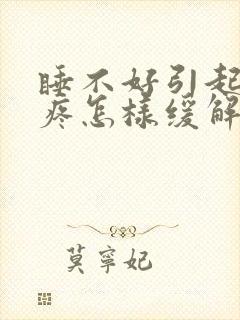 睡不好引起
疼怎样缓解
莫寧妃